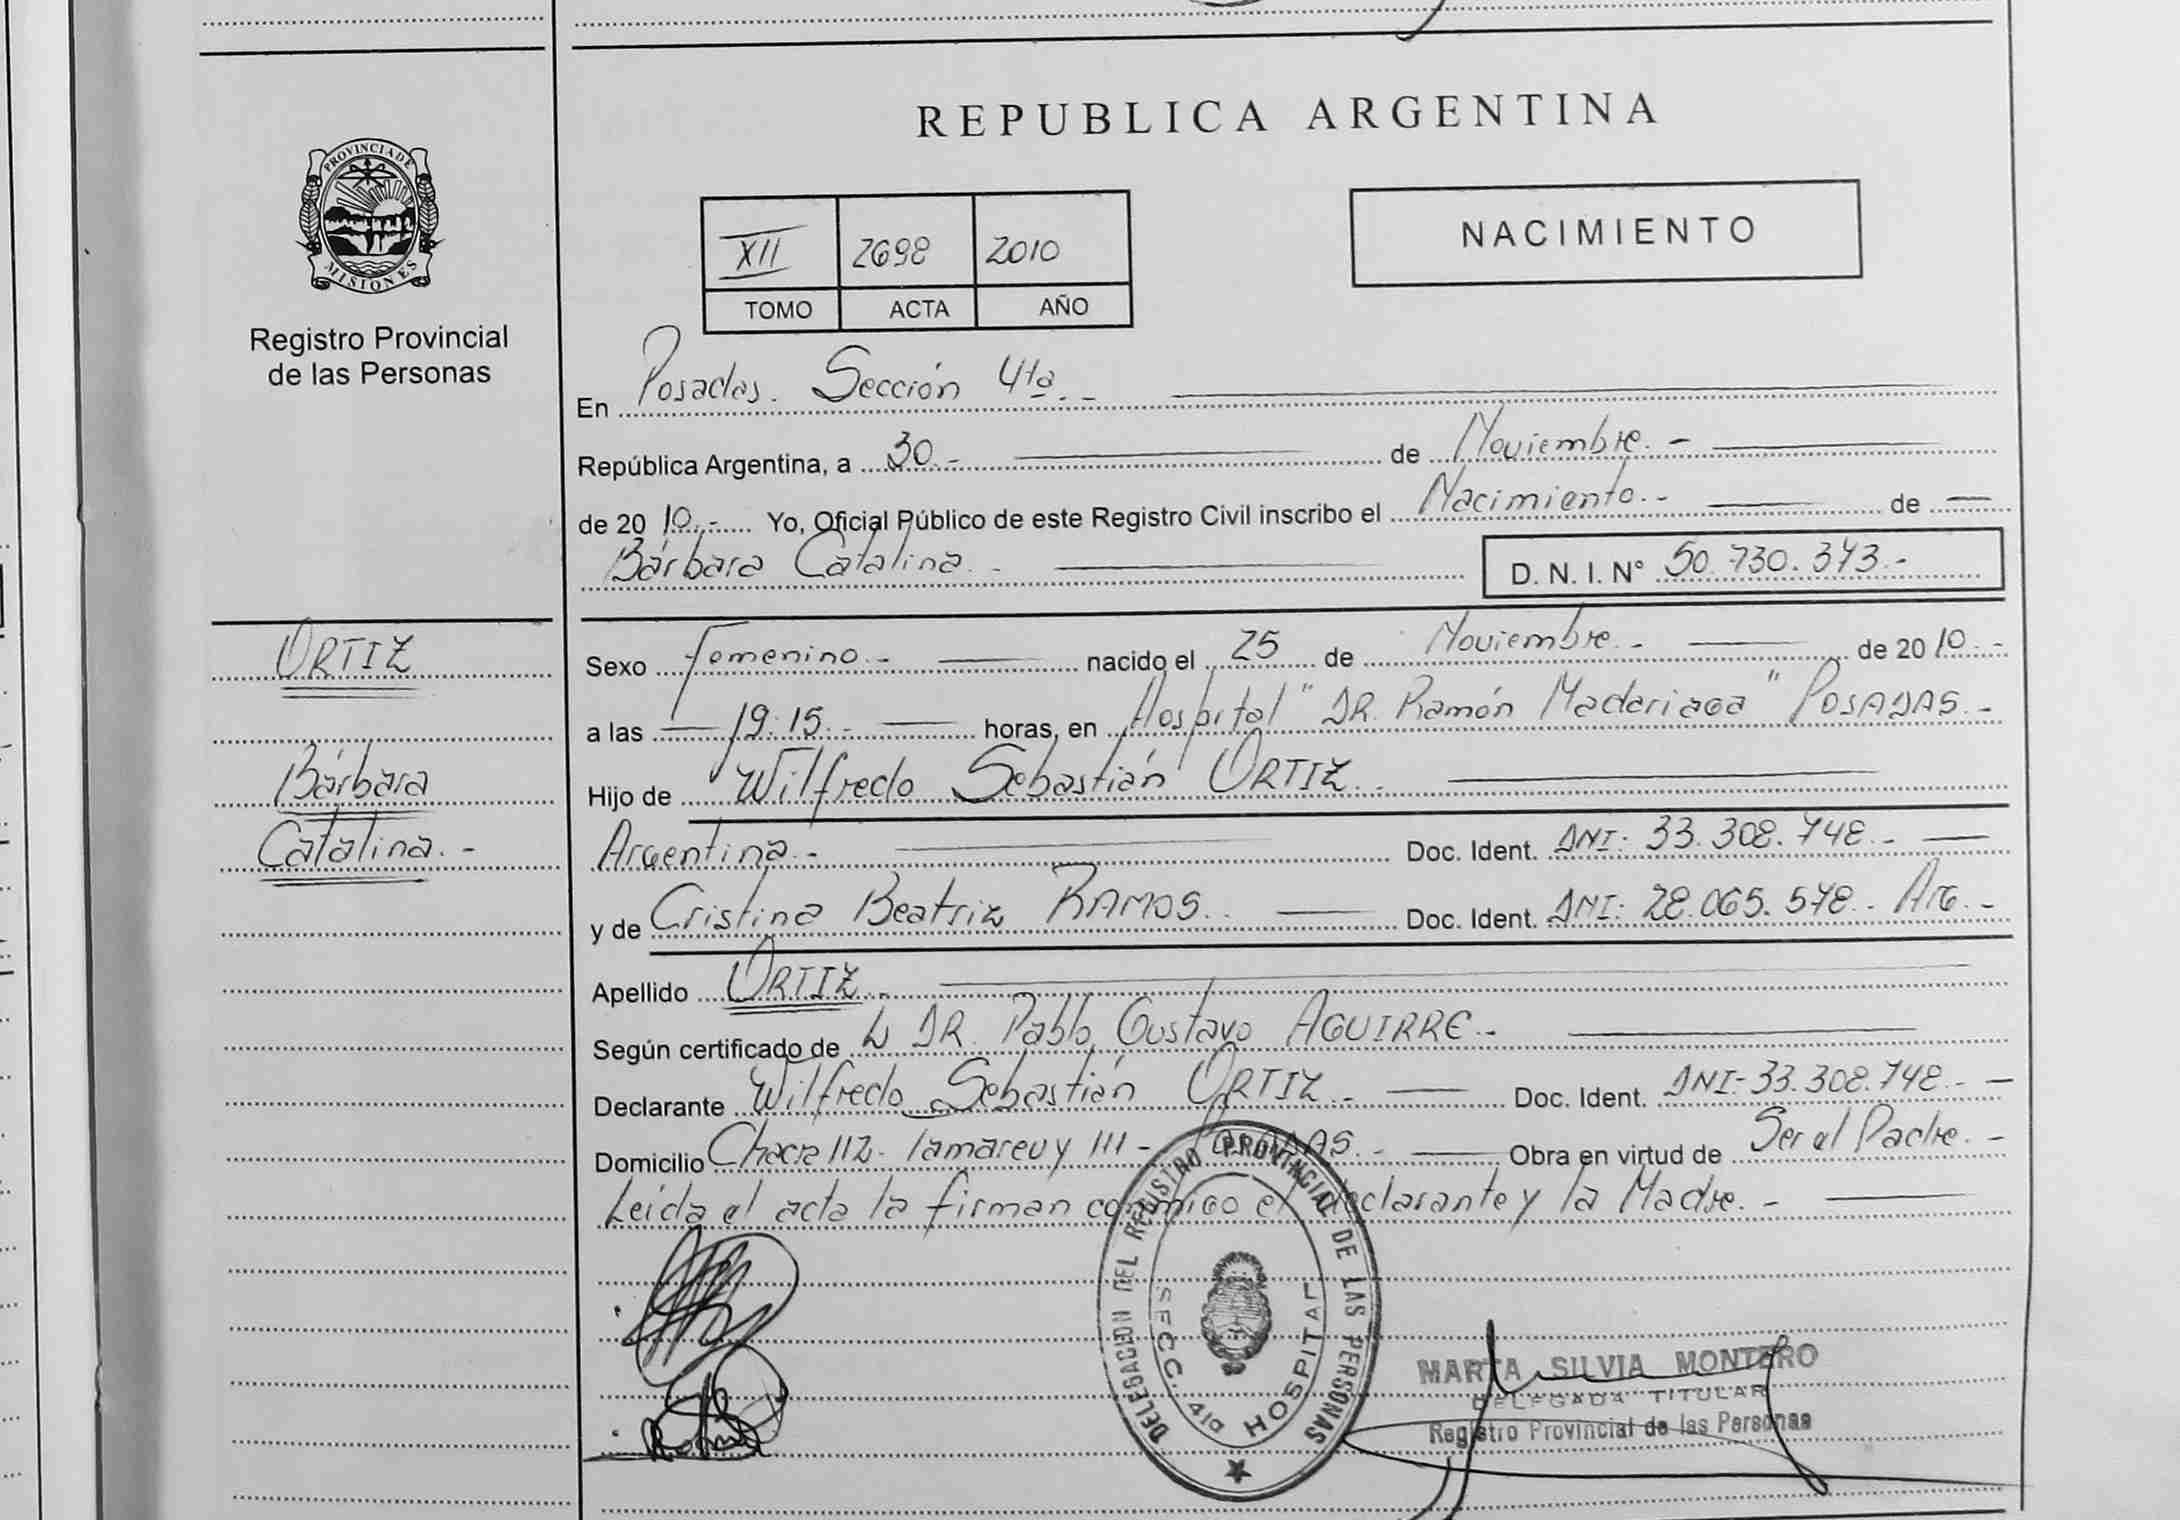 REPUBLICA ARGENTINA
PROVINCIA DE
MISIONES
Registro Provincial
de las Personas
NACIMIENTO
XII 2698 2010
TOMO ACTA AÑO
En Posadas. Sección 4ta.-
República Argentina, a 30.- de Noviembre.-
de 2010.- Yo, Oficial Público de este Registro Civil inscribo el Nacimiento.- de
Bárbara Catalina.- D. N. I. N° 50.730.373.-
ORTIZ
Bárbara
Catalina.-
Sexo Femenino.- nacido el 25 de Noviembre.- de 2010.-
a las 19:15.- horas, en Hospital "DR. Ramón Madariaga" POSADAS.-
Hijo de Wilfredo Sebastián ORTIZ.-
Argentina.- Doc. Ident. DNI: 33.308.748.-
y de Cristina Beatriz RAMOS.- Doc. Ident. DNI: 28.065.578.- Arg.-
Apellido ORTIZ.-
Según certificado de DR. Pablo Gustavo AGUIRRE.-
Declarante Wilfredo Sebastián ORTIZ.- Doc. Ident. DNI- 33.308.748.-
Domicilio Chacra 112- Tamareu y 111- POSADAS.- Obra en virtud de Ser el Padre.-
Leída el acta la firman conmigo el declarante y la Madre.-
DELEGACION DEL REGISTRO PROVINCIAL DE LAS PERSONAS
SECC. 4ta HOSPITAL
MARTA SILVIA MONTERO
DELEGADA TITULAR
Registro Provincial de las Personas